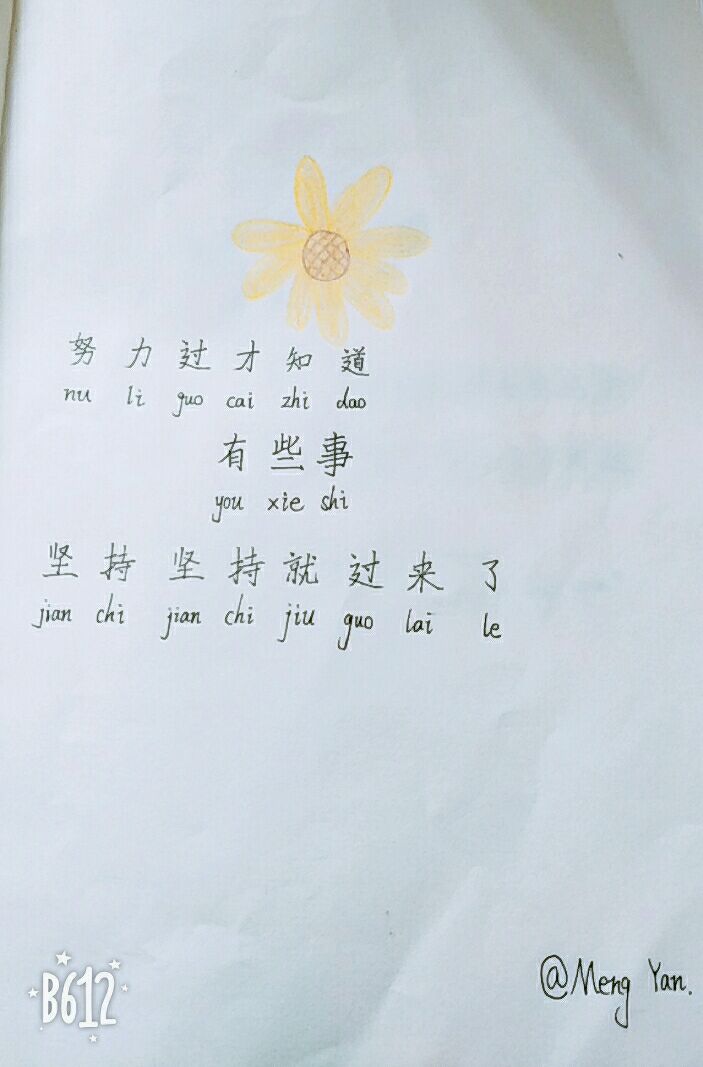 努力过才知道
nu li guo cai zhi dao
有些事
you xie shi
坚持坚持就过来了
jian chi jian chi jiu guo lai le
@Meng Yan.
B612